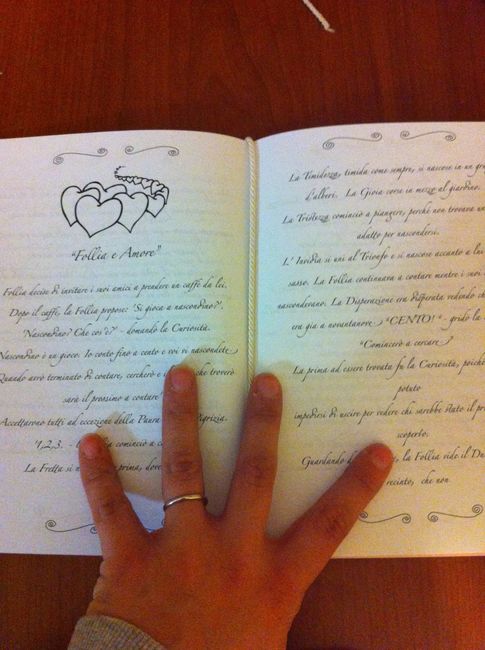 "Follia e Amore"
Follia decise di invitare i suoi amici a prendere un caffè da lei.
Dopo il caffè, la Follia propose: "Si gioca a nascondino?".
"Nascondino? Che cos'è?" - domando la Curiosità.
"Nascondino è un gioco. Io conto fino a cento e voi vi nascondete.
Quando avrò terminato di contare, cercherò e il che troverò
sarà il prossimo a contare".
Accettarono tutti ad eccezione della Paura Pigrizia.
"1,2,3. - la Follia cominciò a
La Fretta si prima, dove
La Timidezza, timida come sempre, si nascose in un
d'alberi. La Gioia corse in mezzo al giardino.
La Tristezza cominciò a piangere, perché non trovava un
adatto per nascondersi.
L' Invidia si unì al Trionfo e si nascose accanto a lui
sasso. La Follia continuava a contare mentre i suoi
nascondevano. La Disperazione era disperata vedendo che
era gia a novantanove. "CENTO!" - grido la
"Comincerò a cercare
La prima ad essere trovata fu la Curiosità, poiché
potuto
impedirsi di uscire per vedere chi sarebbe stato il
scoperto.
Guardando la Follia vide il
recinto, che non